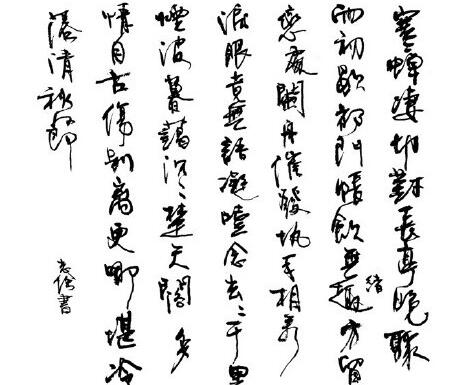 寒蟬淒切對長亭晚驟
雨初歇都門帳飲無趣方留
緒
戀處闌舟催發執手相看
淚眼竟無語凝噎念去々千里
煙波暮靄沉々楚天闊多
情自古傷別離更哪堪冷
落清秋節
書